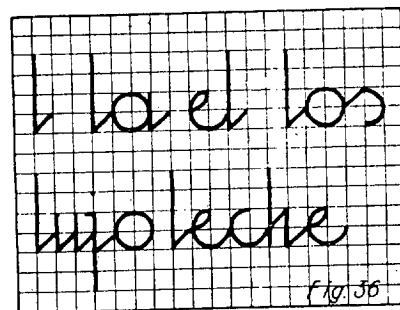 l la el los
lujo leche
fig. 36